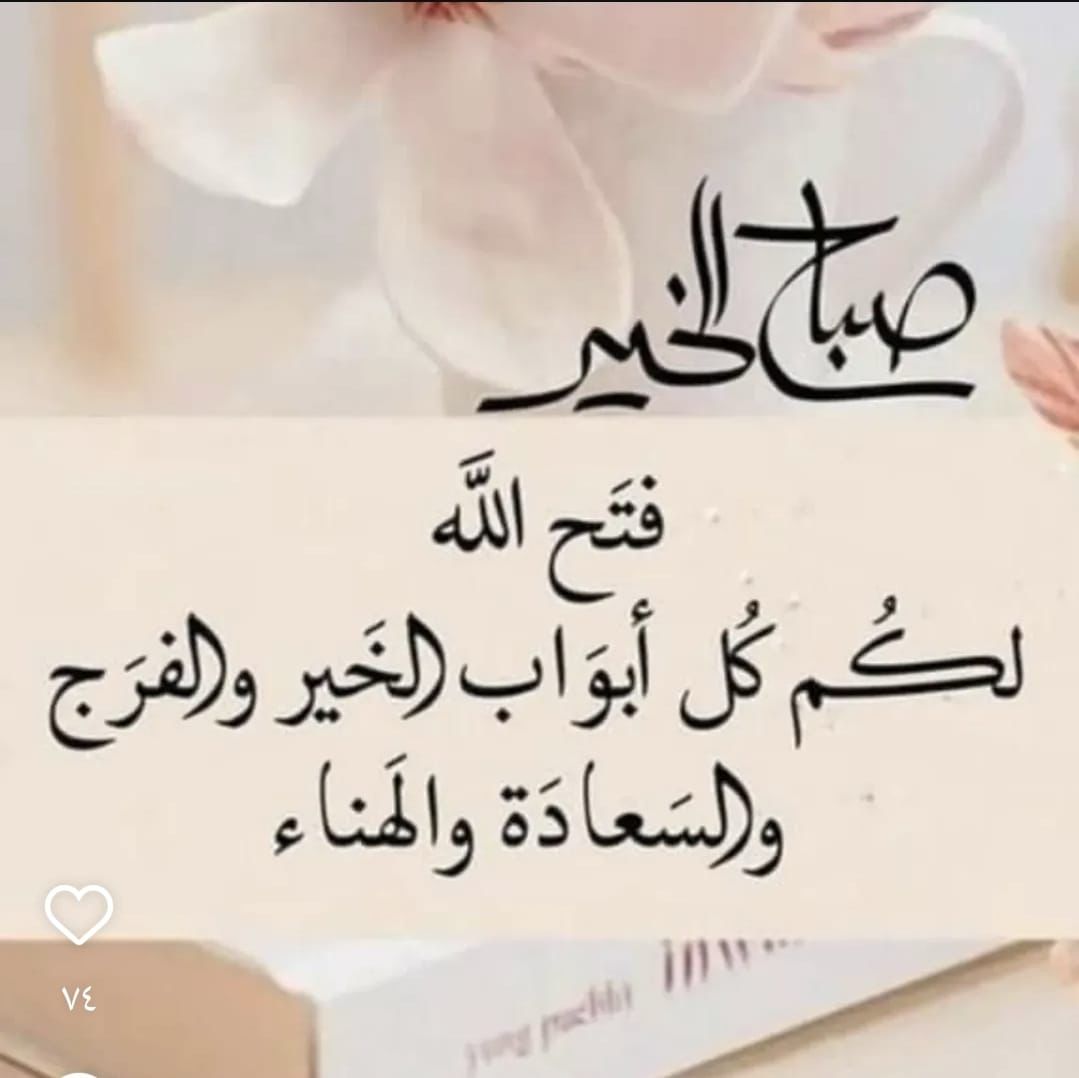 صباح الخير
فتَح اللَّه
لكُم كُل أبوَاب الخَير والفرَج
والسَعادَة والهَناء
٧٤